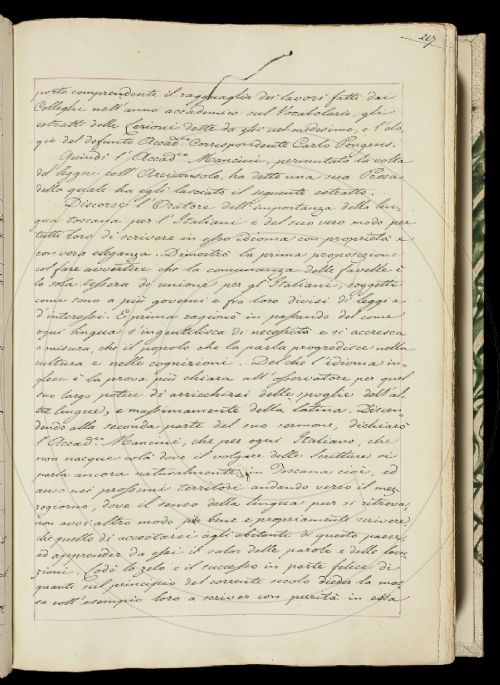 217
porto comprendente il ragguaglio dei lavori fatti dai
Colleghi nell'anno accademico sul Vocabolario, gli
estratti delle Lezioni dette da essi nel medesimo, e l'elo-
gio del defunto Accad.co Corrispondente Carlo Pougens.
Quindi l'Accad.co Mancini, permutata la volta
del leggere coll'Arciconsolo, ha detto una sua Prosa
della quale ha egli lasciato il seguente estratto.
Discorse l'Oratore dell'importanza della lin-
gua toscana per l'Italiani e del suo vero modo per
tutti loro di scrivere in esso idioma con proprietà e
con vera eleganza. Dimostrò la prima proposizione
col fare avvertire che la comunanza delle favelle è
la sola tessera di unione per gl'Italiani, soggetti
come sono a più governi e fra loro divisi di leggi e
d'interessi. E prima ragionò in passando del come
ogni lingua s'ingentilisca di necessità e si accresca
a misura, che il popolo che la parla progredisce nella
cultura e nelle cognizioni. Del che l'idioma in-
glese è la prova più chiara all'osservatore per quel
suo largo potere di arricchirsi delle spoglie dell'al-
tre lingue, e massimamente della latina. Discen-
dendo alla seconda parte del suo sermone, dichiarò
l'Accad.co Mancini, che per ogni Italiano, che
non nacque colà dove il volgare delle scritture si
parla ancora naturalmente, in Toscana cioè, ed
anco nei prossimi territori andando verso il mez-
zogiorno, dove il senso della lingua pur si ritrova,
non avvi altro modo più bene e propriamente scrivere
che quello di accostarsi agli abitanti di questo paese
ed apprender da essi il valor delle parole e delle locu-
zioni. Lodò lo zelo e il successo in parte felice di
quanti sul principio del corrente secolo dieder la mos-
sa coll'esempio loro a scriver con purità in essa